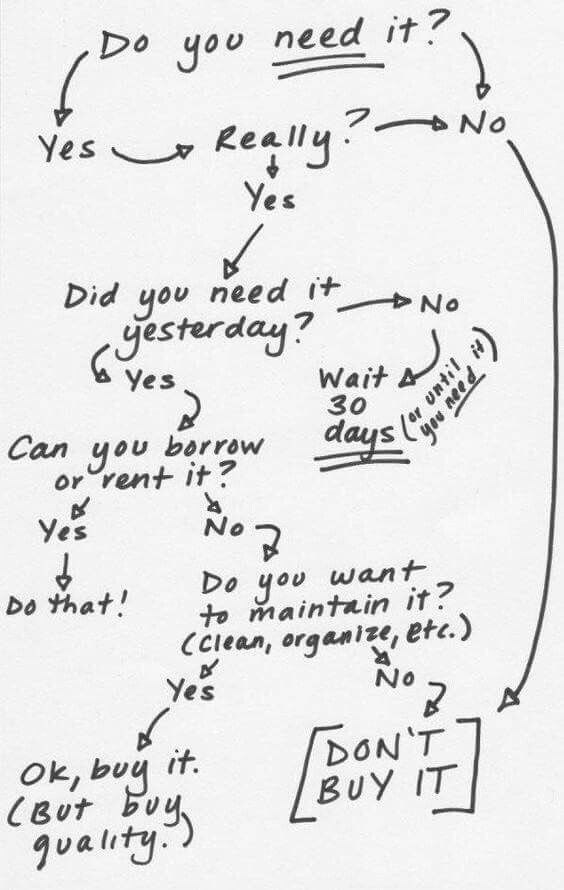 Do you need it?
Yes
Really?
No
Yes
Did you need it
yesterday?
No
Yes
Wait
30
days
(or until
you need it)
Can you borrow
or rent it?
Yes
No
Do that!
Do you want
to maintain it?
(clean, organize, etc.)
Yes
No
Ok, buy it.
(But buy
quality.)
[DON'T
BUY IT]